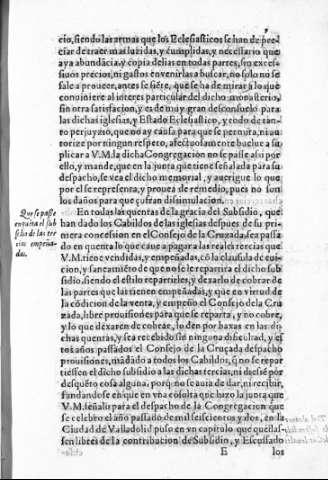 cio, siendo las armas que los Eclesiasticos se han de pre-
ciar de traer mas luzidas, y cumplidas, y necessario que
aya abundãcia, y copia dellas en todas partes, sin exces-
siuos precios, ni gastos en venirlas a buscar, no solo no se
sale a proueer, antes se fiere, que se ha de mirar a lo que
conuiniere al interes particular del dicho monasterio,
sin otra satisfacion, y es de muy gran desconsuelo para
las dichas iglesias, y Estado Eclesiastico, y todo de tan-
to perjuyzio, que no ay causa para que se permita, ni au-
torize por ningun respeto, afectuosamente buelue a su-
plicar a V.M. la dicha Congregacion no se passe assi por
ello, y mande, que en la junta que tiene señalada para su
despacho, se vea el dicho memorial, y auerigue lo que
por el se representa, y prouea de remedio, pues no son
los daños para que çufran dissimulacion.
Que se passe
en quẽta el sub
sidio de las ter
cias empeña-
das.
En todas las quentas de la gracia del Subsidio, que
han dado los Cabildos de las iglesias despues de su pri-
mera concession en el Consejo de la Cruzada, sea passa-
do en quenta lo que caue a pagar a las reales tercias que
V.M. tiene vendidas, y empeñadas, cõ la clausula de euic-
cion, y saneamiẽto de que no se le repartira el dicho sub
sidio, siendo el estilo repartirles, y dexarlo de cobrar de
las partes que las tienen empeñadas, y que en virtud de
la cõdicion de la venta, y empeño el Consejo de la Cru
zada, libre prouisiones para que se reparta, y no cobre,
y lo que dexaren de cobrar, lo den por baxas en las di-
chas quentas, y sea recebido sin ninguna dificultad, y es-
tos años passados el Consejo de la Cruzada despacho
prouisiones, mãdado a todos los Cabildos, q̃ no se repar
tiesse el dicho subsidio a las dichas tercias, ni diesse por
desquẽto cosa alguna, porq̃ no se auia de dar, ni recibir,
fundandose en que en vna cõsulta que hizo la junta que
V.M. señalò para el despacho de la Congregacion que
se celebro el año passado de mil seiscientos y dos, en la
Ciudad de Valladolid puso en vn capitulo que quedas-
sen libres de la contribucion de Subsidio, y Escusado
E
los